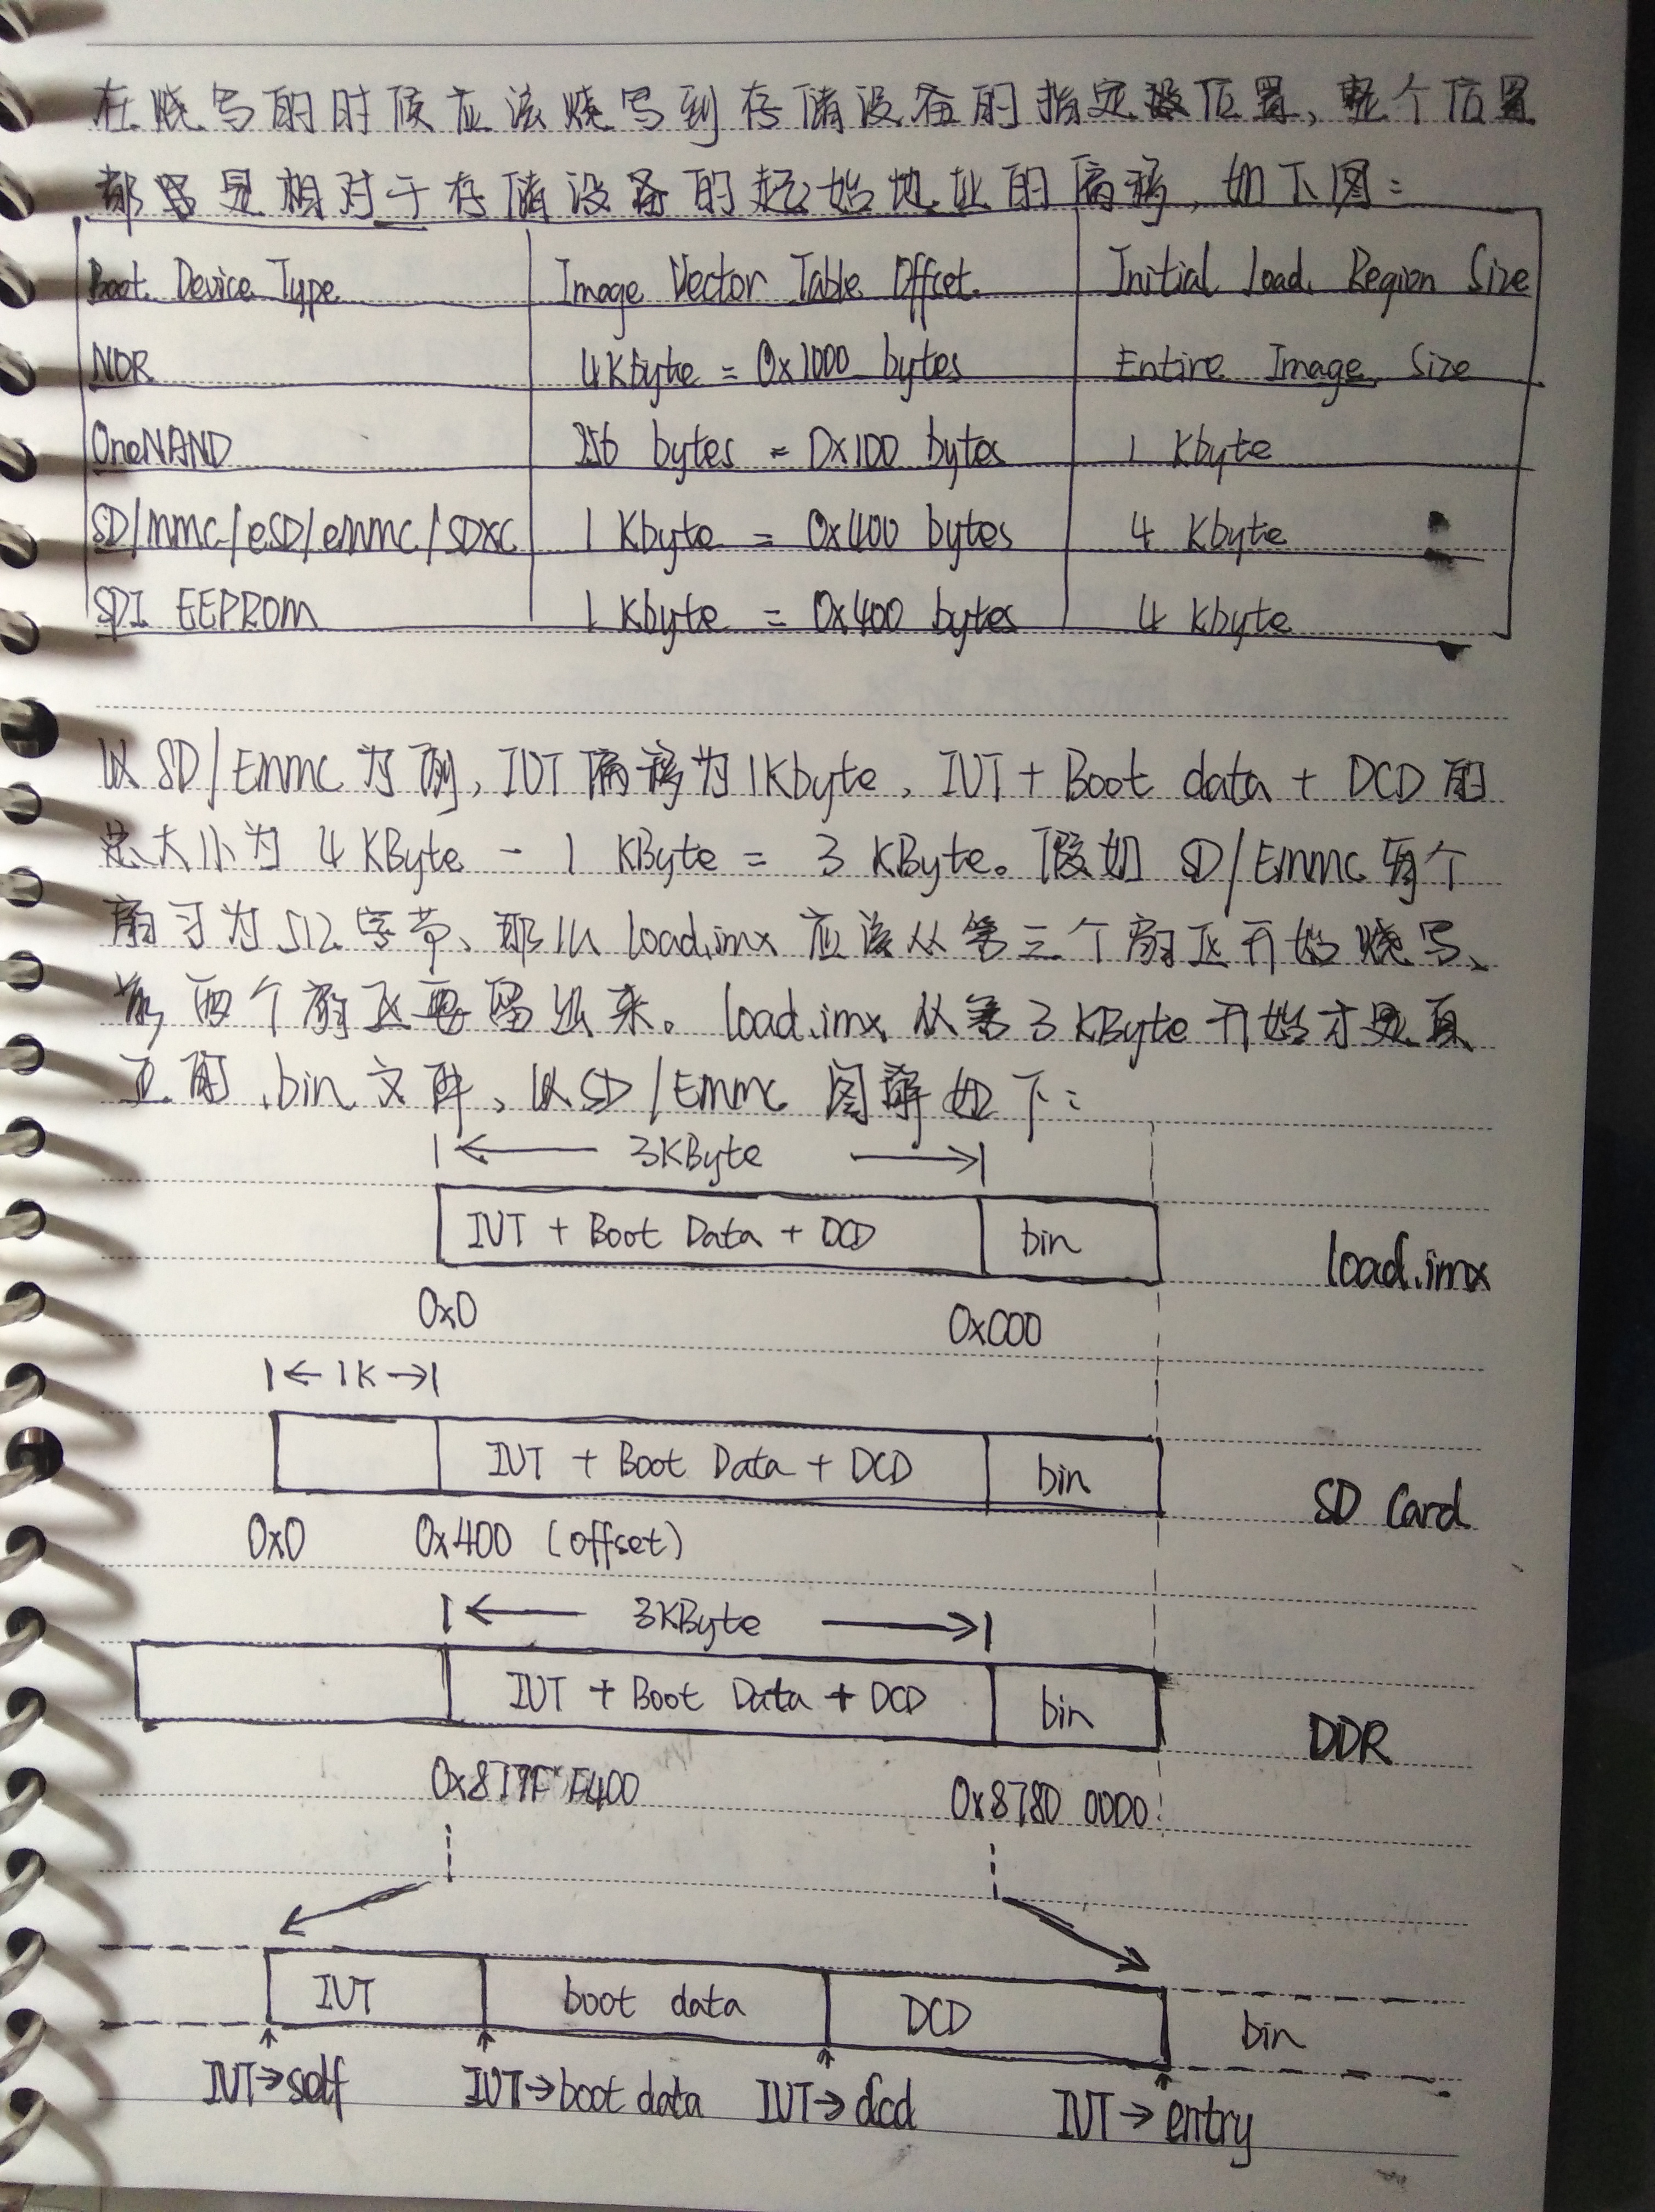 在烧写的时候应该烧写到存储设备的指定位置,整个位置
都是相对于存储设备的起始地址的偏移,如下图:
Boot Device Type Image Vector Table Offset. Initial Load Region Size
NOR 4Kbyte = 0x1000 bytes Entire Image Size
OneNAND 256 bytes = 0x100 bytes 1 Kbyte
SD/mmc/eSD/emmc/SDXC 1 Kbyte = 0x400 bytes 4 Kbyte
SPI EEPROM 1 Kbyte = 0x400 bytes 4 Kbyte
以SD/Emmc为例,IVT偏移为1Kbyte,IVT + Boot data + DCD的
总大小为 4 KByte - 1 KByte = 3 KByte。假如 SD/Emmc 每个
扇区为512字节、那么 load.imx 应该从第三个扇区开始烧写、
前两个扇区要留出来。load.imx 从第3KByte开始才是真
正的.bin文件,以SD/Emmc 图解如下:
3KByte
IVT + Boot Data + DCD bin
load.imx
0x0 0xC00
1K
IVT + Boot Data + DCD bin
SD Card
0x0 0x400 (offset)
3KByte
IVT + Boot Data + DCD bin
DDR
0x877F F400 0x8780 0000
IVT boot data DCD bin
IVT→self IVT→boot data IVT→dcd IVT→entry